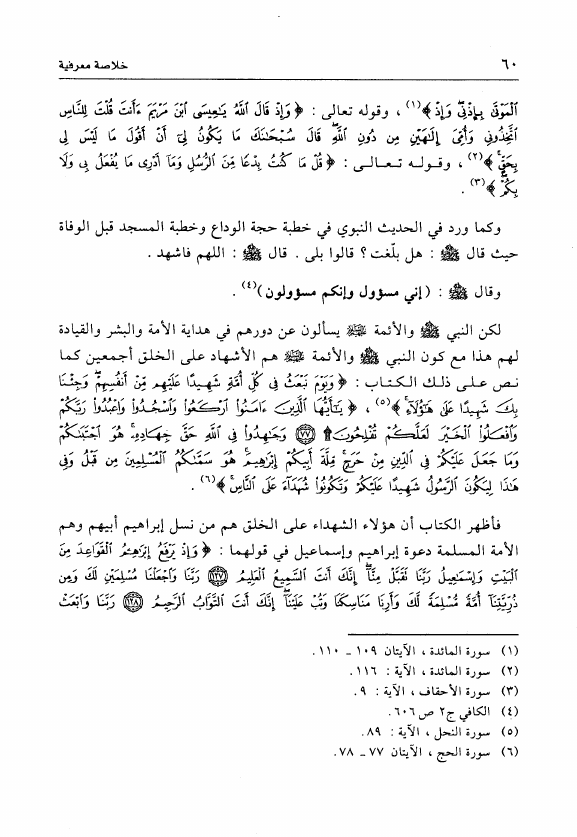 ٦٠ خلاصة معرفية
ٱلْمَوْتَىٰ بِإِذْنِي وَإِذْ﴾(١) ، وقوله تعالى : ﴿وَإِذْ قَالَ ٱللَّهُ يَٰعِيسَى ٱبْنَ مَرْيَمَ ءَأَنتَ قُلْتَ لِلنَّاسِ
ٱتَّخِذُونِي وَأُمِّيَ إِلَٰهَيْنِ مِن دُونِ ٱللَّهِ قَالَ سُبْحَٰنَكَ مَا يَكُونُ لِيٓ أَنْ أَقُولَ مَا لَيْسَ لِي
بِحَقٍّ﴾(٢) ، وقوله تعالى : ﴿قُلْ مَا كُنتُ بِدْعًا مِّنَ ٱلرُّسُلِ وَمَآ أَدْرِي مَا يُفْعَلُ بِي وَلَا
بِكُمْ﴾(٣) .
وكما ورد في الحديث النبوي في خطبة حجة الوداع وخطبة المسجد قبل الوفاة
حيث قال ﷺ : هل بلّغت ؟ قالوا بلى . قال ﷺ : اللهم فاشهد .
وقال ﷺ : (إني مسؤول وإنكم مسؤولون)(٤) .
لكن النبي ﷺ والأئمة يسألون عن دورهم في هداية الأمة والبشر والقيادة
لهم هذا مع كون النبي ﷺ والأئمة هم الأشهاد على الخلق أجمعين كما
نص على ذلك الكتاب : ﴿وَيَوْمَ نَبْعَثُ فِي كُلِّ أُمَّةٍ شَهِيدًا عَلَيْهِم مِّنْ أَنفُسِهِمْ وَجِئْنَا
بِكَ شَهِيدًا عَلَىٰ هَٰٓؤُلَآءِ﴾(٥) ، ﴿يَٰٓأَيُّهَا ٱلَّذِينَ ءَامَنُوا۟ ٱرْكَعُوا۟ وَٱسْجُدُوا۟ وَٱعْبُدُوا۟ رَبَّكُمْ
وَٱفْعَلُوا۟ ٱلْخَيْرَ لَعَلَّكُمْ تُفْلِحُونَ ۩ ٧٧ وَجَٰهِدُوا۟ فِي ٱللَّهِ حَقَّ جِهَادِهِۦ هُوَ ٱجْتَبَىٰكُمْ
وَمَا جَعَلَ عَلَيْكُمْ فِي ٱلدِّينِ مِنْ حَرَجٍ مِّلَّةَ أَبِيكُمْ إِبْرَٰهِيمَ هُوَ سَمَّىٰكُمُ ٱلْمُسْلِمِينَ مِن قَبْلُ وَفِي
هَٰذَا لِيَكُونَ ٱلرَّسُولُ شَهِيدًا عَلَيْكُمْ وَتَكُونُوا۟ شُهَدَآءَ عَلَى ٱلنَّاسِ﴾(٦) .
فأظهر الكتاب أن هؤلاء الشهداء على الخلق هم من نسل إبراهيم أبيهم وهم
الأمة المسلمة دعوة إبراهيم وإسماعيل في قولهما : ﴿وَإِذْ يَرْفَعُ إِبْرَٰهِيمُ ٱلْقَوَاعِدَ مِنَ
ٱلْبَيْتِ وَإِسْمَٰعِيلُ رَبَّنَا تَقَبَّلْ مِنَّآ إِنَّكَ أَنتَ ٱلسَّمِيعُ ٱلْعَلِيمُ ١٢٧ رَبَّنَا وَٱجْعَلْنَا مُسْلِمَيْنِ لَكَ وَمِن
ذُرِّيَّتِنَآ أُمَّةً مُّسْلِمَةً لَّكَ وَأَرِنَا مَنَاسِكَنَا وَتُبْ عَلَيْنَآ إِنَّكَ أَنتَ ٱلتَّوَّابُ ٱلرَّحِيمُ ١٢٨ رَبَّنَا وَٱبْعَثْ
(١) سورة المائدة ، الآيتان ١٠٩ ـ ١١٠.
(٢) سورة المائدة ، الآية : ١١٦.
(٣) سورة الأحقاف ، الآية : ٩.
(٤) الكافي ج٢ ص ٦٠٦.
(٥) سورة النحل ، الآية : ٨٩.
(٦) سورة الحج ، الآيتان ٧٧ ـ ٧٨.